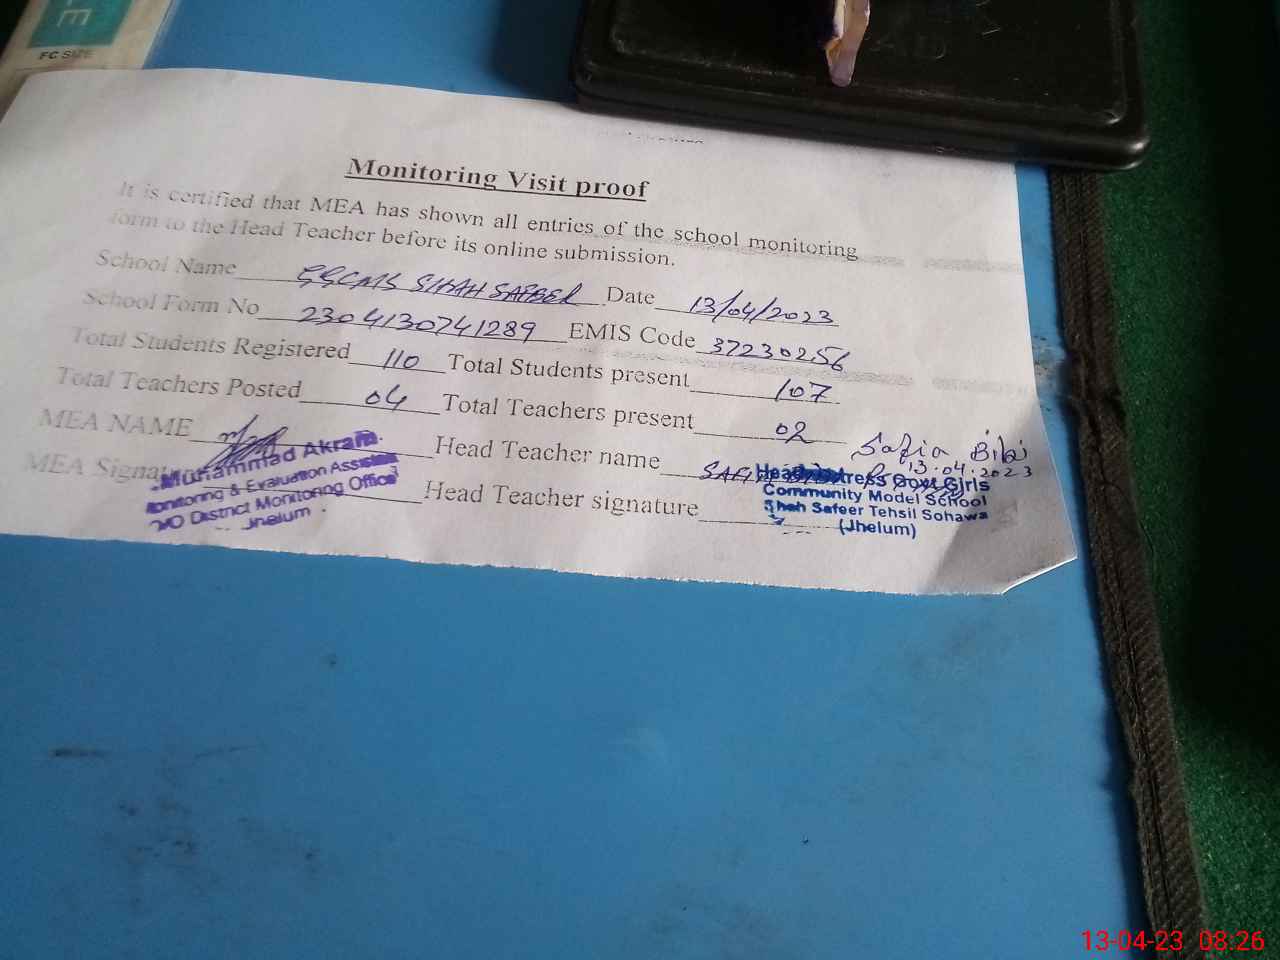 FC SIZE
Monitoring Visit proof
It is certified that MEA has shown all entries of the school monitoring
form to the Head Teacher before its online submission.
School Name GGCMS SHAH SAFEER Date 13/04/2023
School Form No 2304130741289 EMIS Code 37230256
Total Students Registered 110 Total Students present 107
Total Teachers Posted 04 Total Teachers present 02
MEA NAME Head Teacher name
Safia Bibi
13.04.2023
MEA Signature Head Teacher signature
Muhammad Akram
Monitoring & Evaluation Assistant
O/O District Monitoring Office
Jhelum
Headmistress Govt Girls
Community Model School
Shah Safeer Tehsil Sohawa
(Jhelum)
13-04-23 08:26